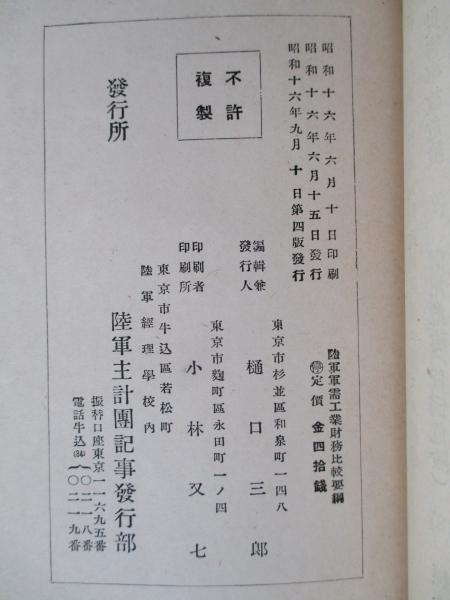 昭和十六年六月十日印刷
昭和十六年六月十五日發行
昭和十六年九月十日第四版發行
不許
複製
陸軍軍需工業財務比較要綱
停定價 金四拾錢
東京市杉並區和泉町一四八
編輯兼
發行人 樋口三郎
東京市麴町區永田町一ノ四
印刷者
印刷所 小林又七
東京市牛込區若松町
陸軍經理學校内
發行所 陸軍主計團記事發行部
振替口座東京一一六九五番
電話牛込(34)
一〇二一八番
一〇二一九番